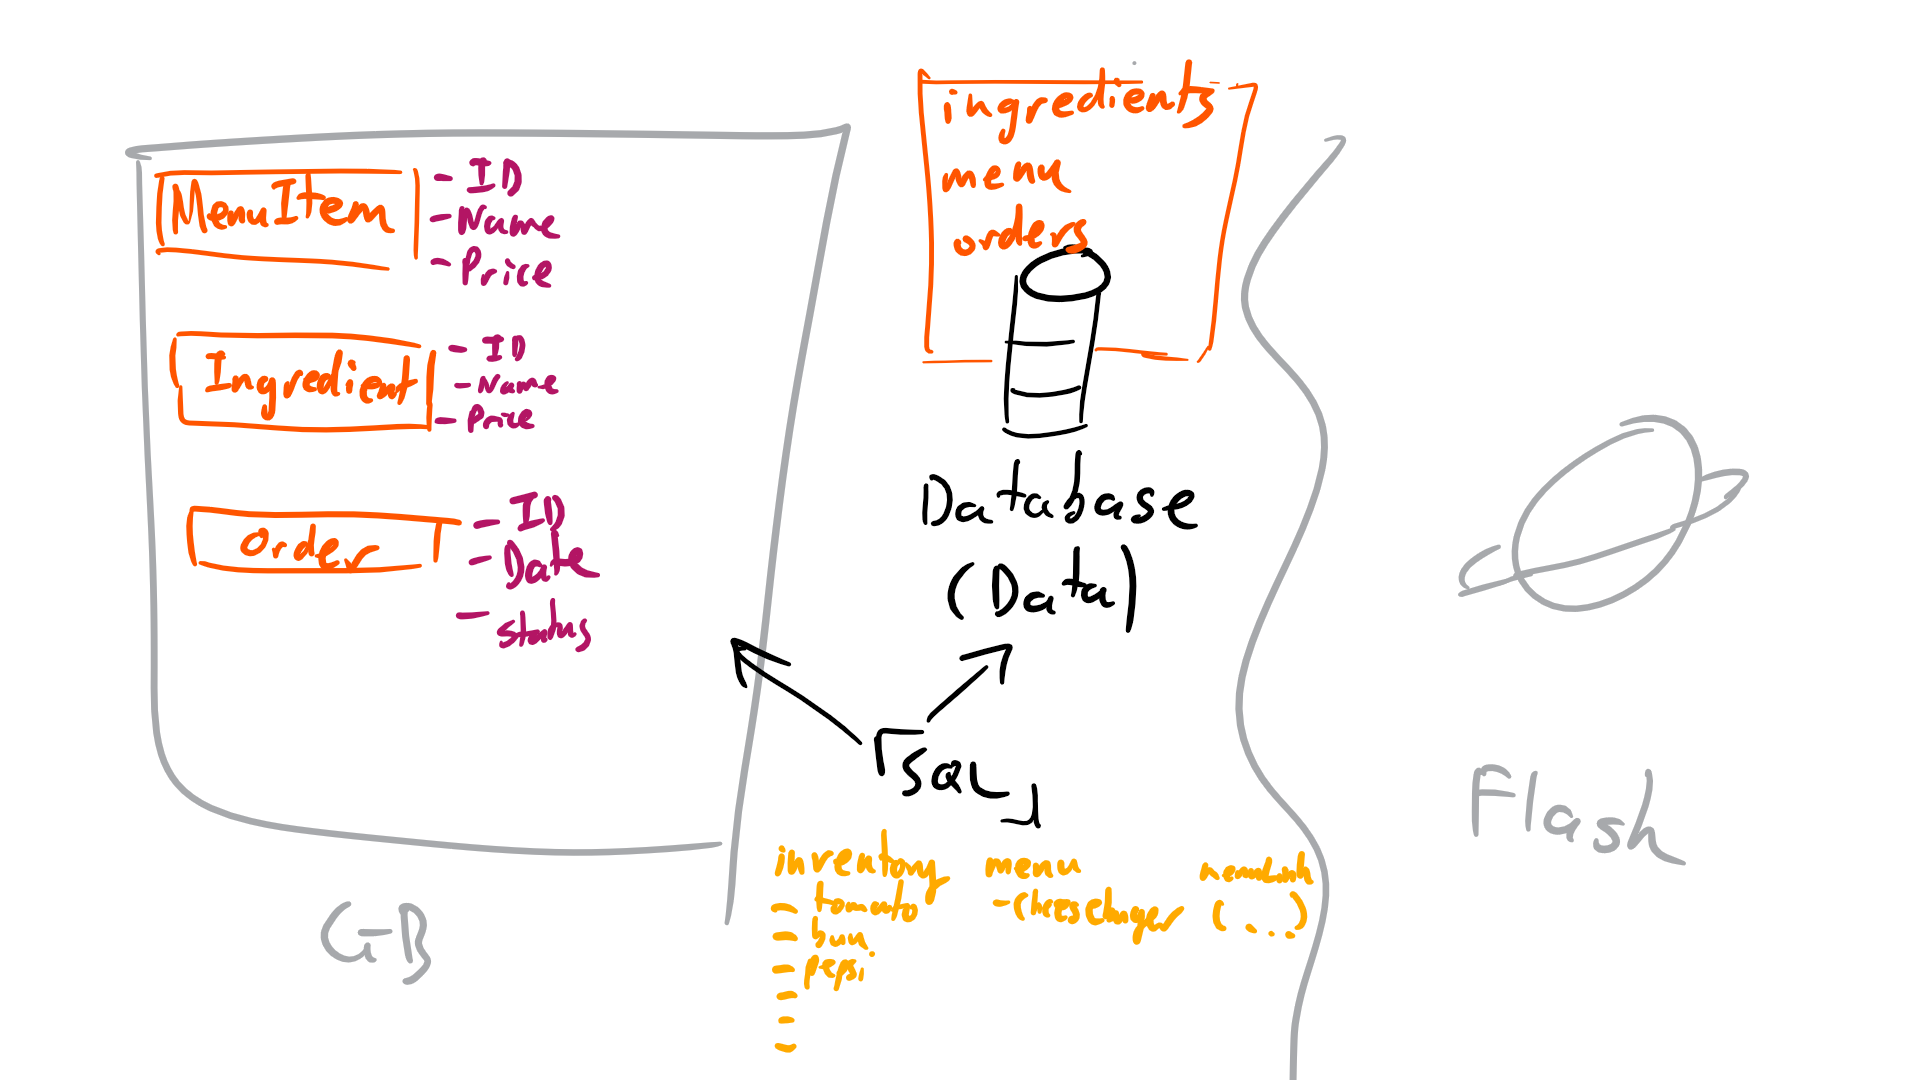 MenuItem
- ID
- Name
- Price
Ingredient
- ID
- Name
- Price
Order
- ID
- Date
- Status
GB
ingredients
menu
orders
Database
(Data)
「SQL」
inventory
- tomato
- bun
- pepsi
-
-
-
menu
- Cheeseburger
menuLink
(...)
Flash